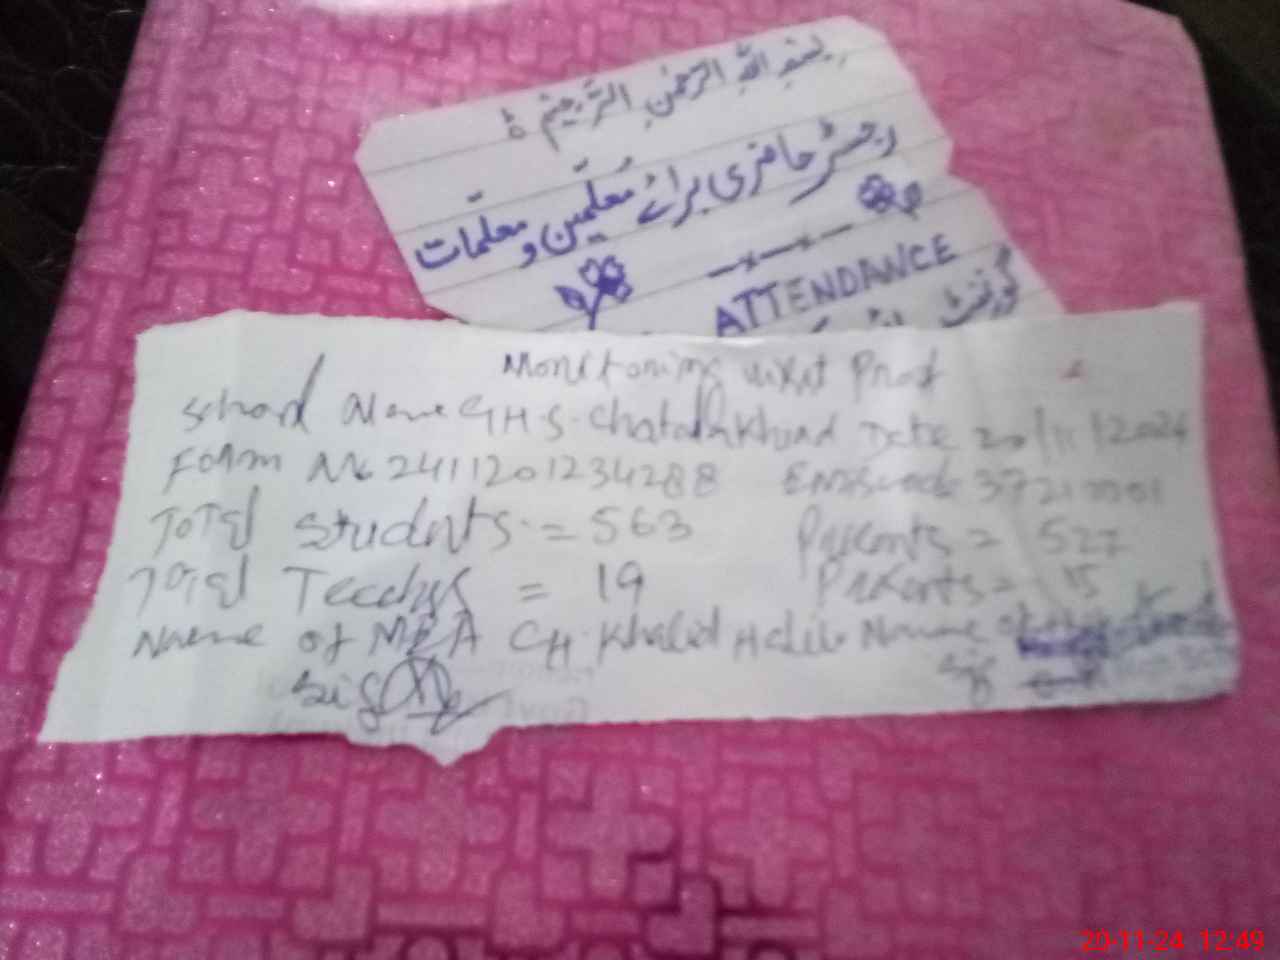 بِسْمِ اللّٰهِ الرَّحْمٰنِ الرَّحِيْمِ ط
رجسٹر حاضری برائے مُعلّمین و معلّمات
ATTENDANCE
گورنمنٹ
Monitoring visit Proof
School Name GHS. Date 20/11/2024
Form No 2411201234288 Emiscode
Total Students = 563 Presents = 527
Total Teachers = 19 Presents = 15
Name of MEA CH. Khalid Name of
Sig Sig
20-11-24 12:49